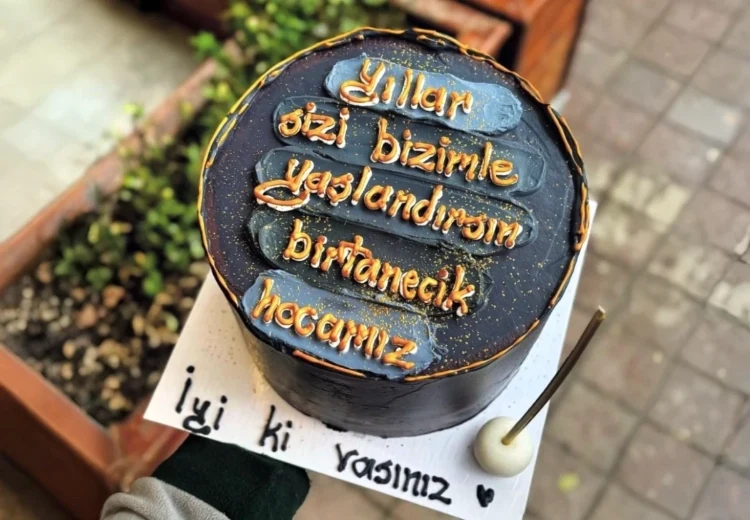 yıllar
sizi bizimle
yaşlandırsın
birtanecik
hocamız
iyi ki varsınız ♥